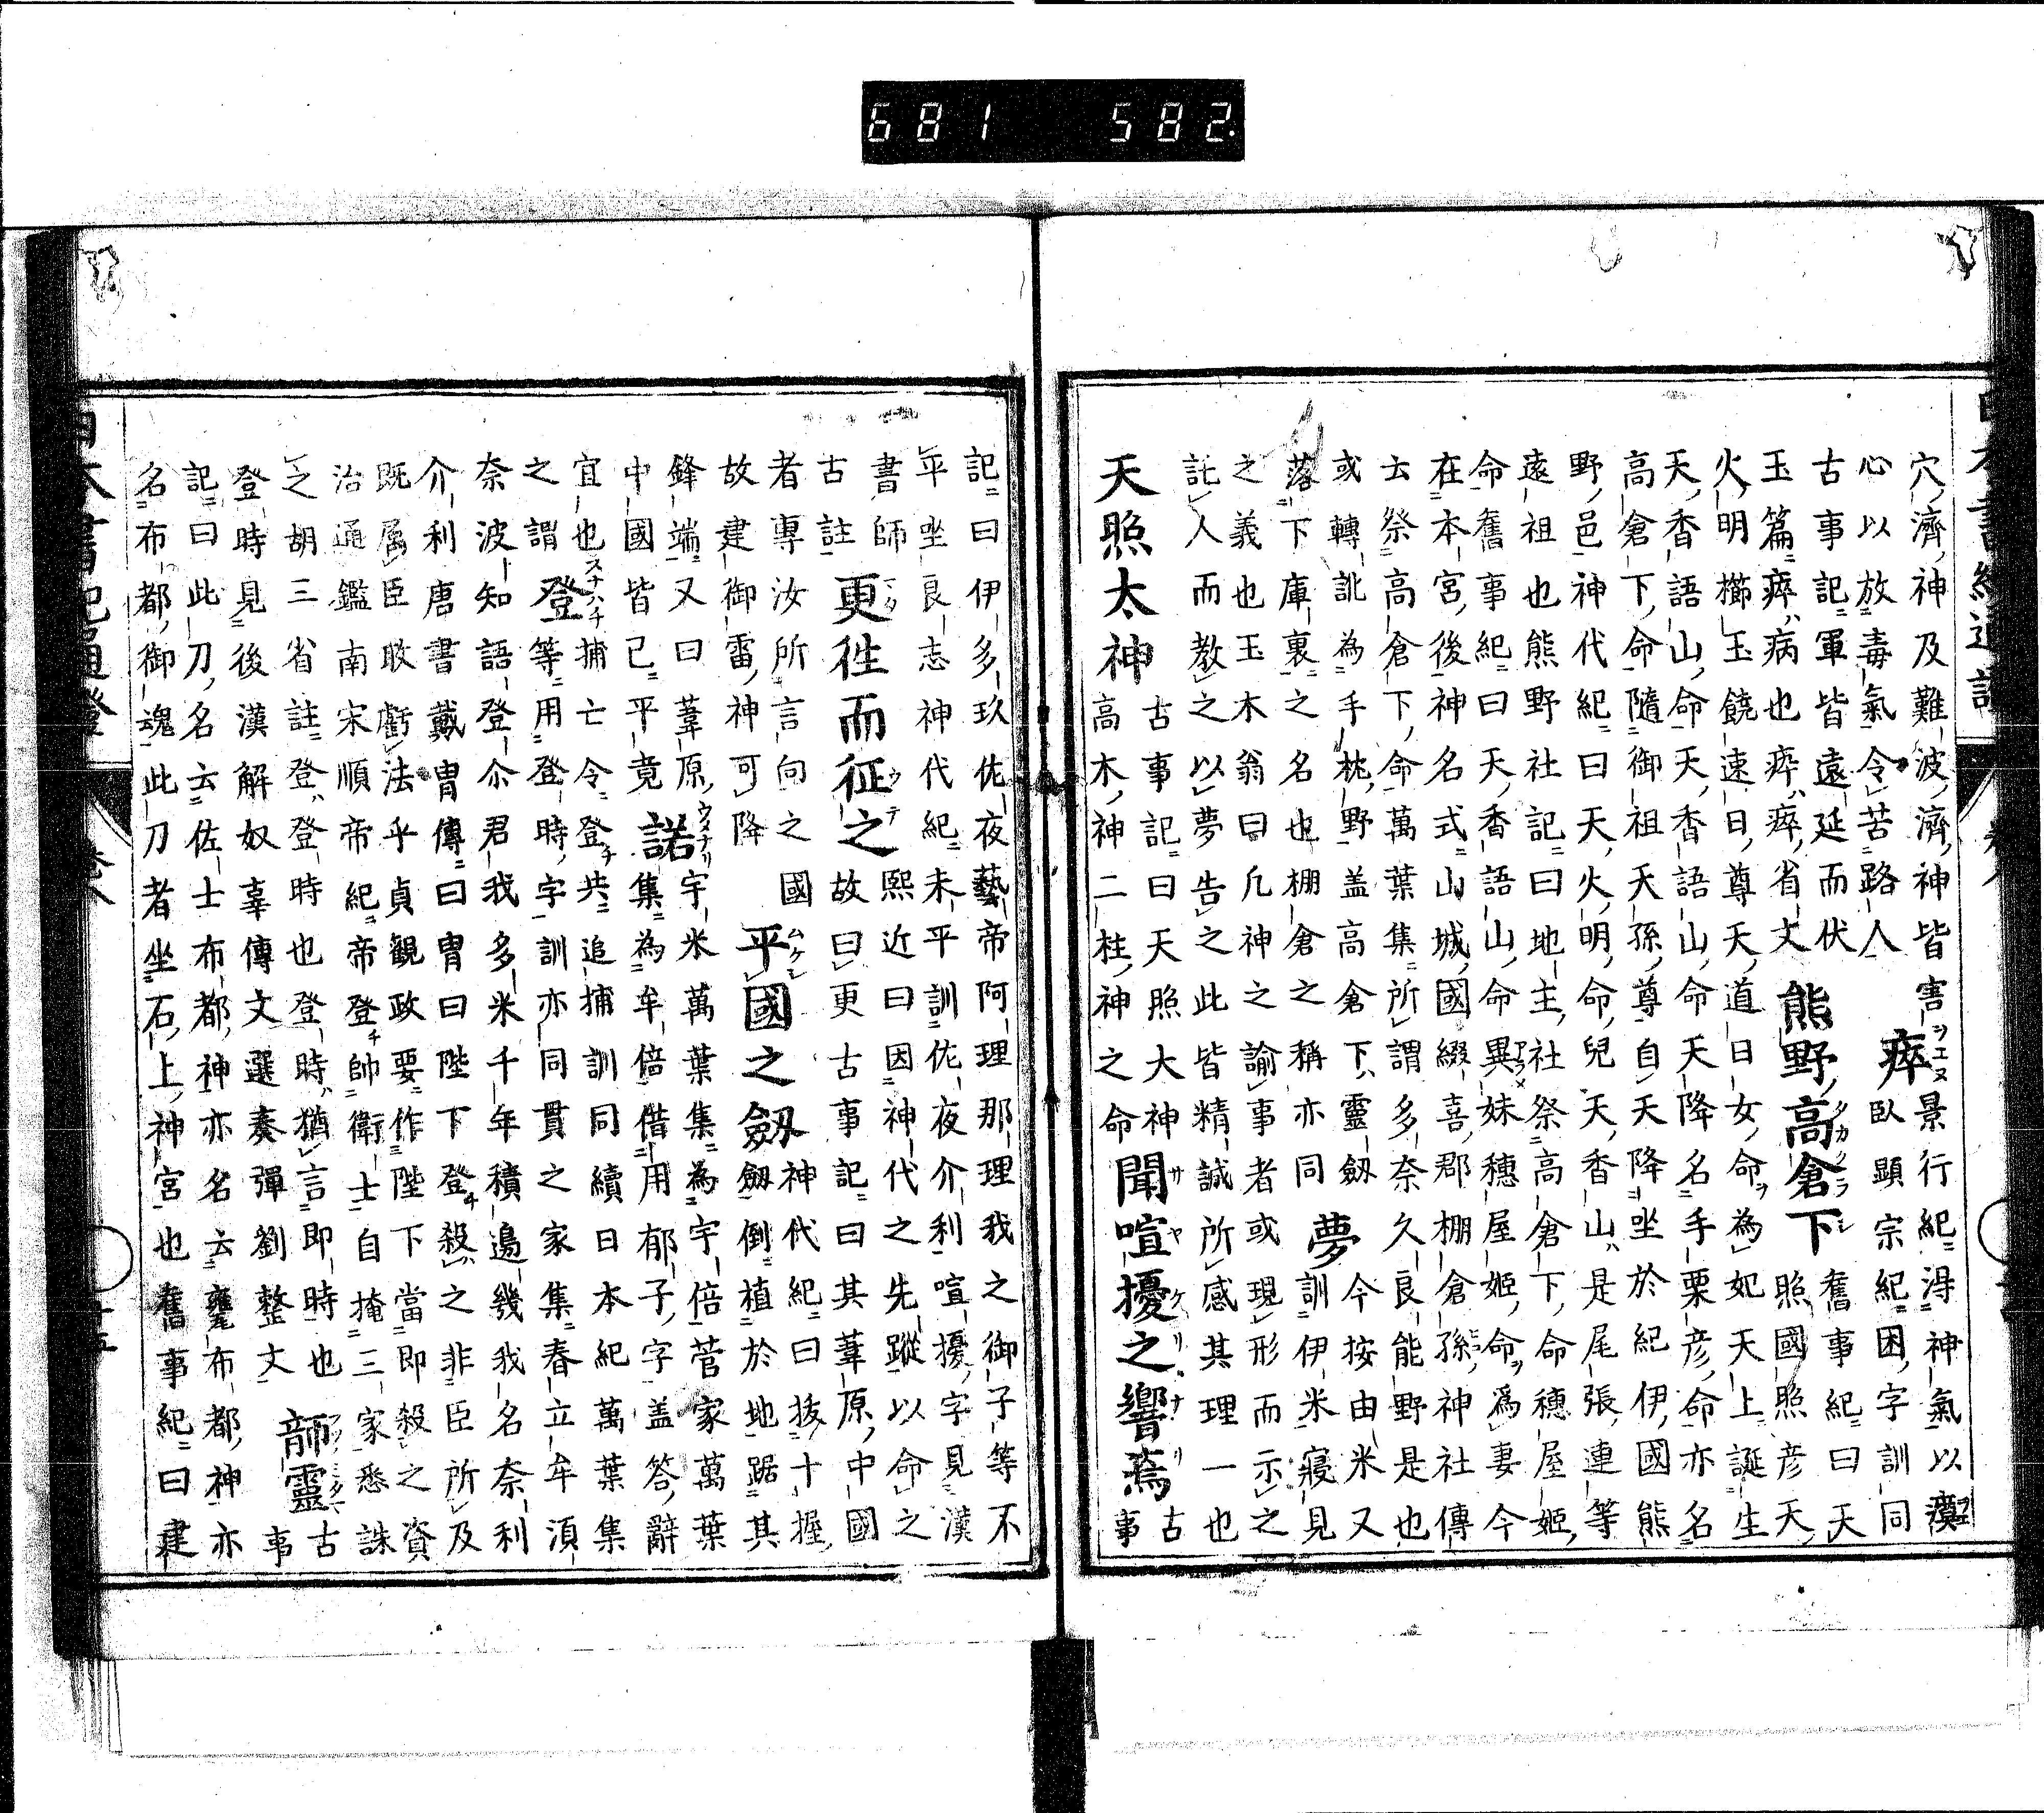 681 582
穴濟神及難波濟神皆害景行紀淂神氣以瘼
心以放毒氣令苦路人 瘁臥顯宗紀困字訓同
古事記軍皆遠延而伏
玉篇瘁病也瘁瘁省文 熊野高倉下 舊事紀曰天照國照彦天
火明櫛玉饒速日尊天道日女命為妃天上誕生
天香語山命天香語山命天降名手栗彦命亦名
高倉下命隨御祖天孫尊自天降坐於紀伊國熊
野邑神代紀曰天火明命兒天香山是尾張連等
遠祖也熊野社記曰地主社祭高倉下命穗屋姬
命舊事紀曰天香語山命異妹穗屋姬命為妻今
在本宮後神名式山城國綴喜郡棚倉孫神社傳
云祭高倉下命萬葉集所謂多奈久良能野是也
或轉訛為手枕野盖高倉下靈劔 夢 今按由米又
落下庫裏之名也棚倉之稱亦同 訓伊米寢見
之義也玉木翁曰凡神之諭事者或現形而示之
託人而教之以夢告之此皆精誠所感其理一也
天照太神 古事記曰天照大神高木神二柱神之命 聞喧擾之響焉 古事
記曰伊多玖佐夜藝帝阿理那理我之御子等不
平坐良志神代紀未平訓佐夜介利喧擾字見漢
書師古註 更徃而征之 熙近曰因神代之先蹤以命之故曰更古事記曰其葦原中國
者專汝所言向之國
故建御雷神可降 平國之劔 神代紀曰拔十握劔倒植於地踞其
鋒端又曰葦原
中國皆已平竟 諾 宇米萬葉集為宇倍菅家萬葉集為牟倍借用郁子字盖答辭
宜也 捕亡令登共追捕訓同續日本紀萬葉集
之謂 登 等用登時字訓亦同貫之家集春立牟湏
奈波知語登介君我多米千年積邉幾我名奈利
介利唐書戴冑傳曰冑曰陛下登殺之非臣所及
既属臣敢虧法乎貞観政要作陛下當即殺之資
治通鑑南宋順帝紀帝登帥衛士自掩三家悉誅
之胡三省註登登時也登時猶言即時也
登時見後漢解奴辜傳文選奏彈劉整文 韴靈 古事
記曰此刀名云佐士布都神亦名云甕布都神亦
名布都御魂此刀者坐石上神宮也舊事紀曰建